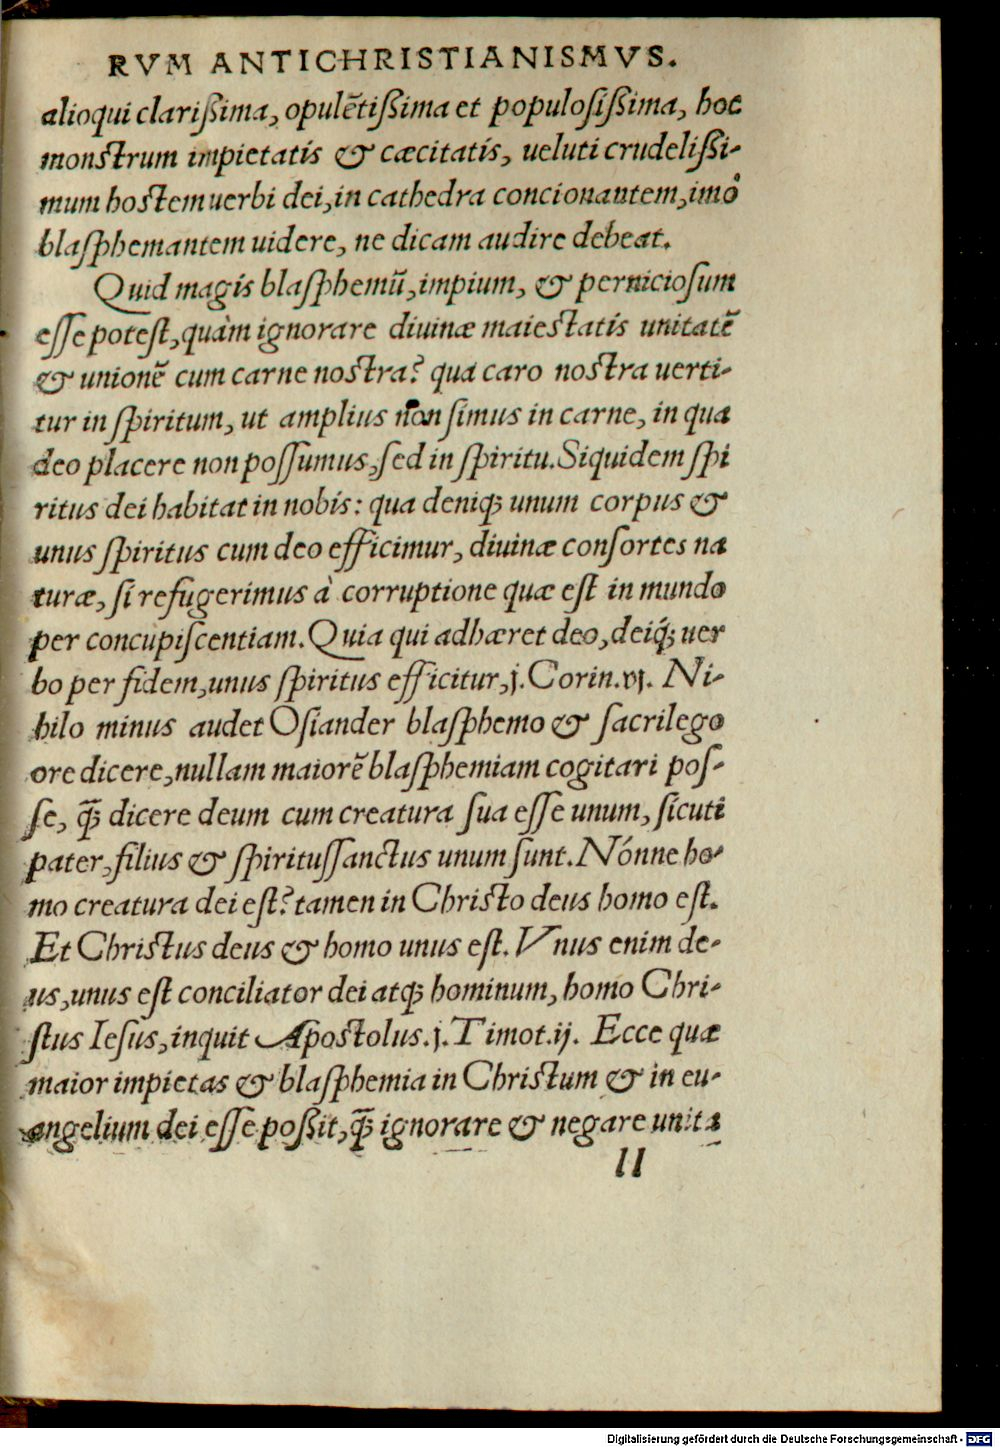 RVM ANTICHRISTIANISMVS.
alioqui clarißima, opulẽtißima et populosißima, hoc
monstrum impietatis & cæcitatis, ueluti crudelißi-
mum hostem uerbi dei, in cathedra concionantem, imò
blaſphemantem uidere, ne dicam audire debeat.
Quid magis blaſphemũ, impium, & pernicioſum
eſſe poteſt, quàm ignorare diuinæ maiestatis unitatẽ
& unionẽ cum carne nostra? qua caro nostra uerti-
tur in ſpiritum, ut amplius non ſimus in carne, in qua
deo placere non poſſumus, ſed in ſpiritu. Siquidem ſpi
ritus dei habitat in nobis: qua deniqꝫ unum corpus &
unus ſpiritus cum deo efficimur, diuinæ conſortes na
turæ, ſi refugerimus à corruptione quæ eſt in mundo
per concupiſcentiam. Quia qui adhæret deo, deiqꝫ́ uer
bo per fidem, unus ſpiritus efficitur, j. Corin. vj. Ni-
hilo minus audet Oſiander blaſphemo & ſacrilego
ore dicere, nullam maiorẽ blaſphemiam cogitari poſ-
ſe, q̃ꝫ dicere deum cum creatura ſua eſſe unum, ſicuti
pater, filius & ſpirituſſanctus unum ſunt. Nónne ho-
mo creatura dei eſt? tamen in Christo deus homo eſt.
Et Christus deus & homo unus eſt. Vnus enim de-
us, unus eſt conciliator dei atqꝫ hominum, homo Chri-
ſtus Ieſus, inquit Apostolus. j. Timot. ij. Ecce quæ
maior impietas & blaſphemia in Christum & in eu-
angelium dei eſſe poßit, q̃ꝫ ignorare & negare unita
ll
Digitalisierung gefördert durch die Deutsche Forschungsgemeinschaft - DFG